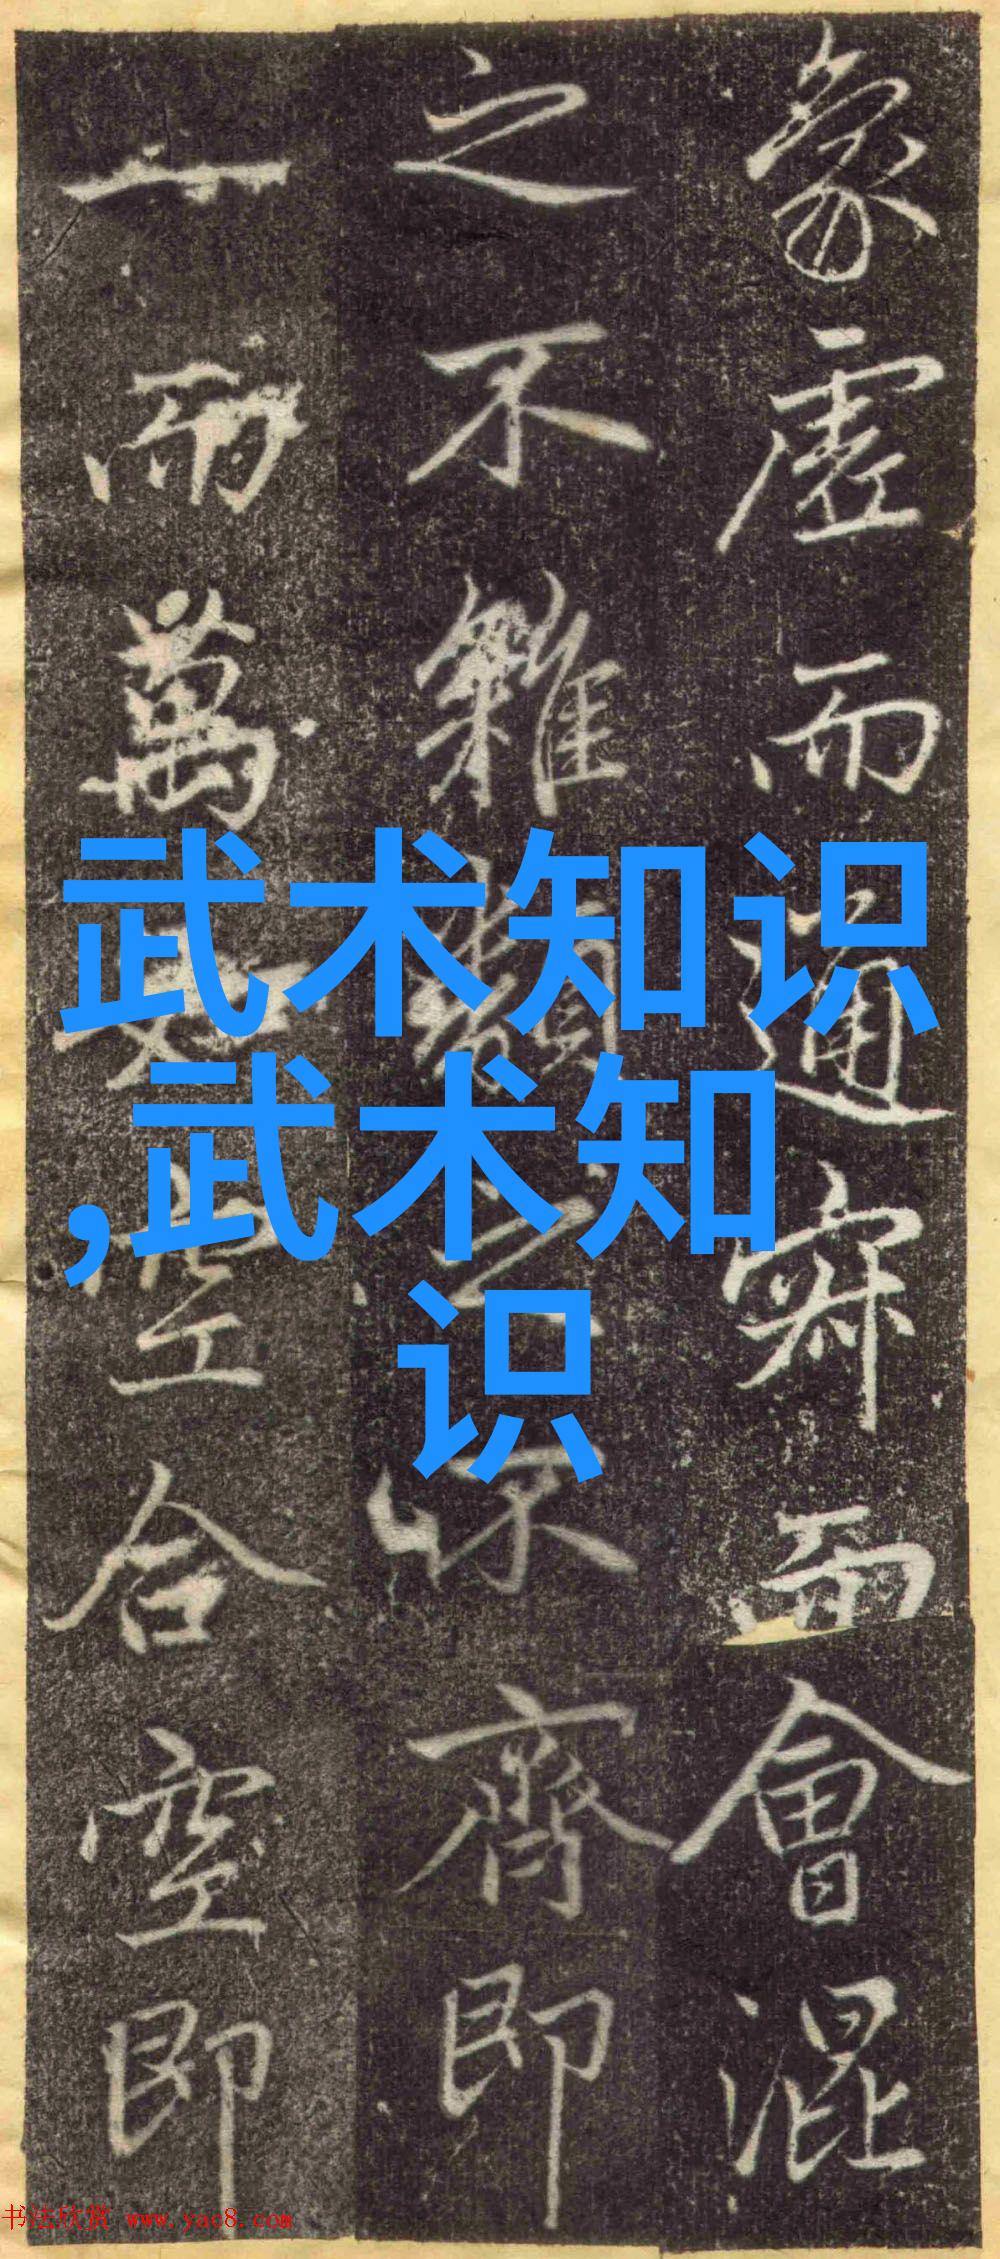 象虚而通寂而會混
之不雜類之不齊即
一而萬以空合空即
武术知识
,武术知
识
书法欣赏 www.yac8.com